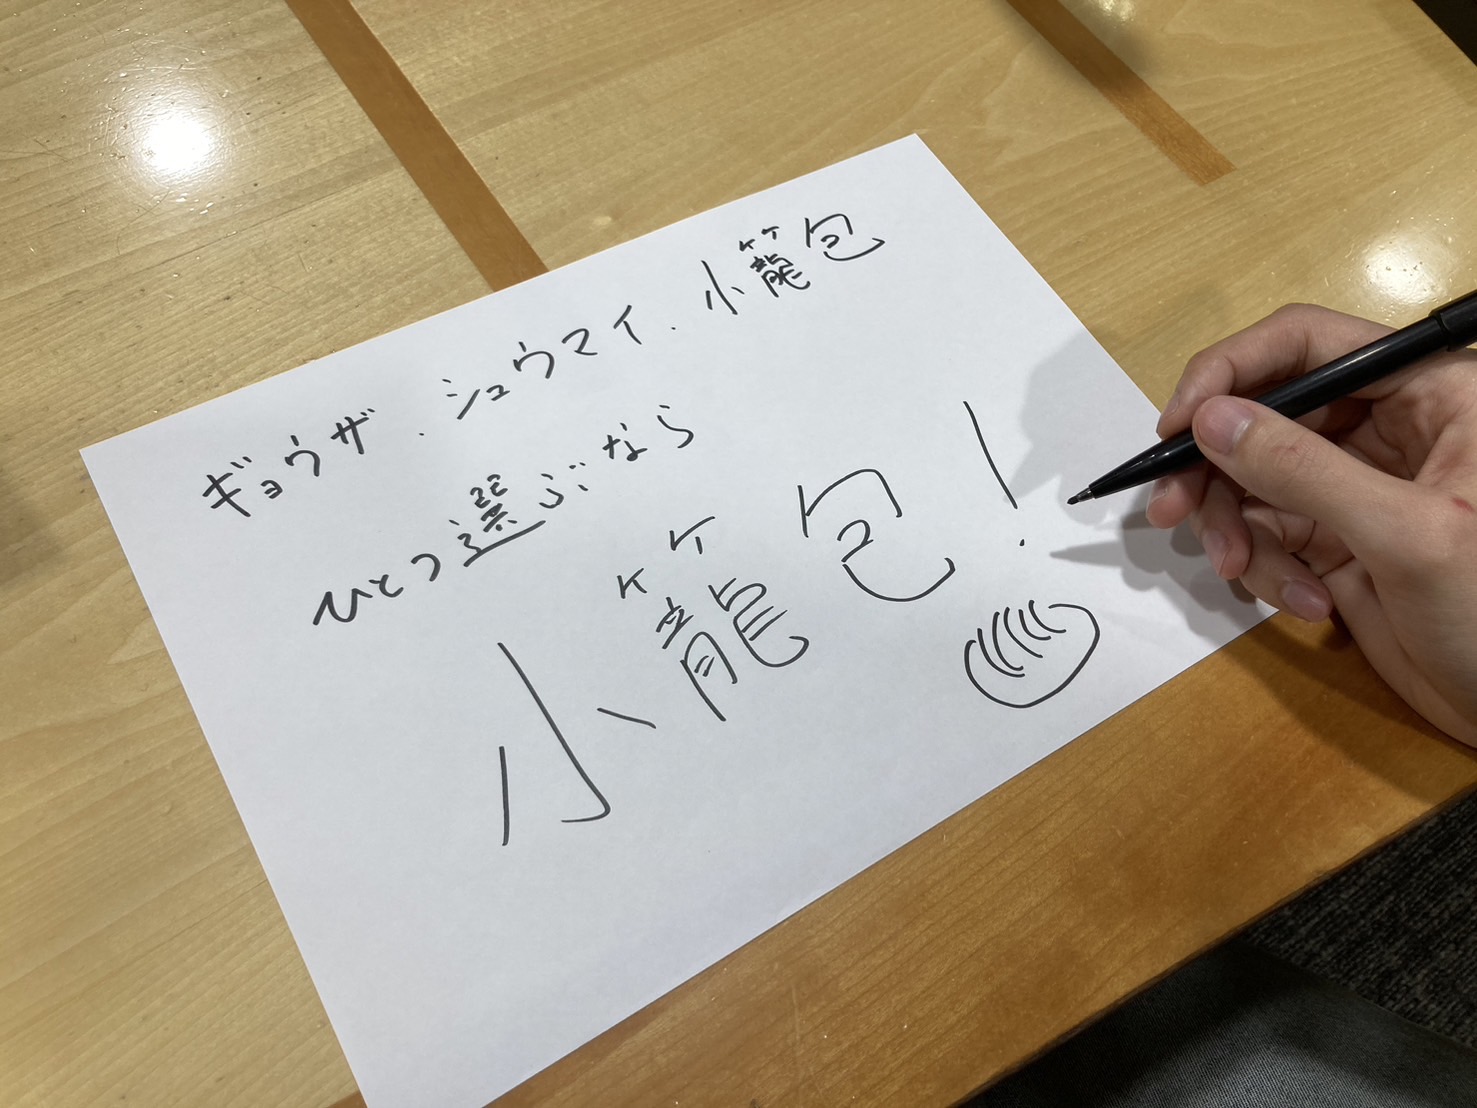 ギョウザ、シュウマイ、小籠包
ひとつ選ぶなら
小籠包！